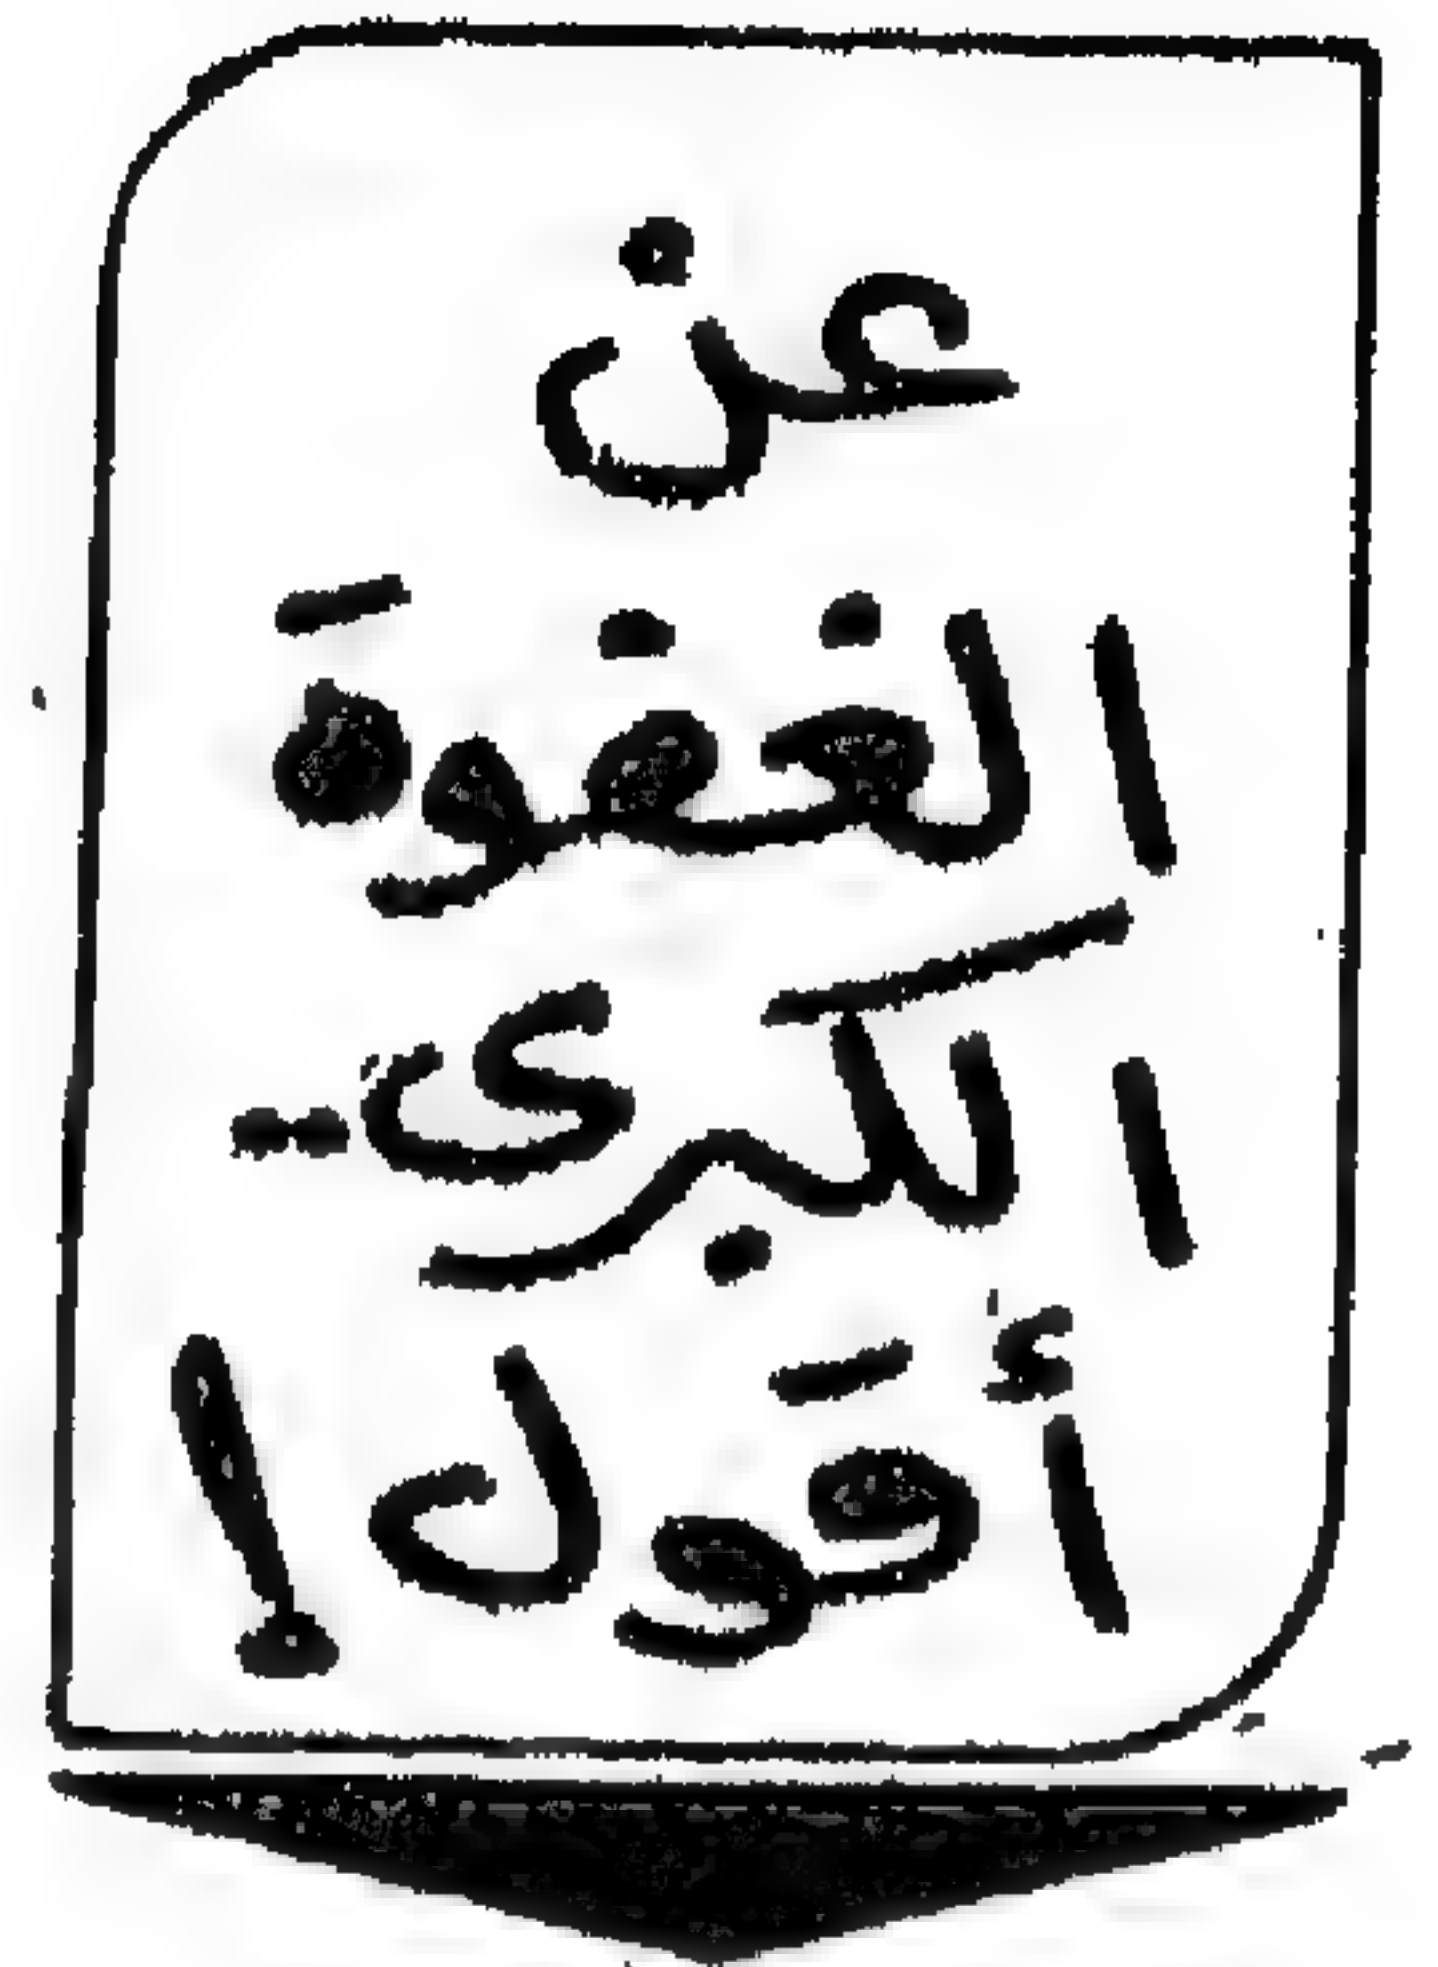 عن
الغفوة
الكبرى..
أقول!